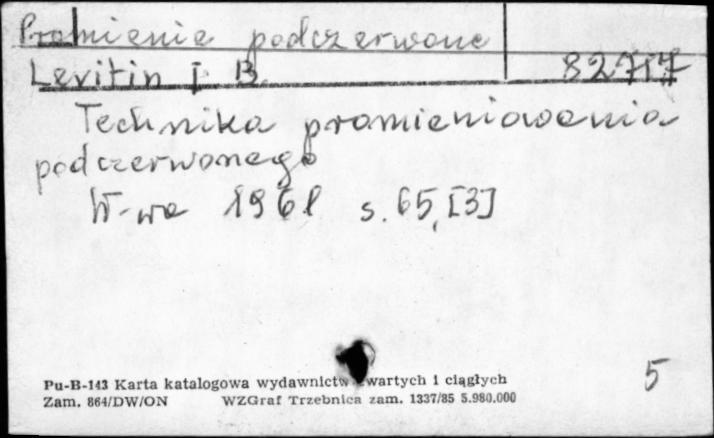 Promienie podczerwone
Levitin I. B. 82717
Technika promieniowania
podczerwonego
W-wa 1961 s. 65, [3]
5
Pu-B-143 Karta katalogowa wydawnictw zwartych i ciągłych
Zam. 864/DW/ON WZGraf Trzebnica zam. 1337/85 5.980.000